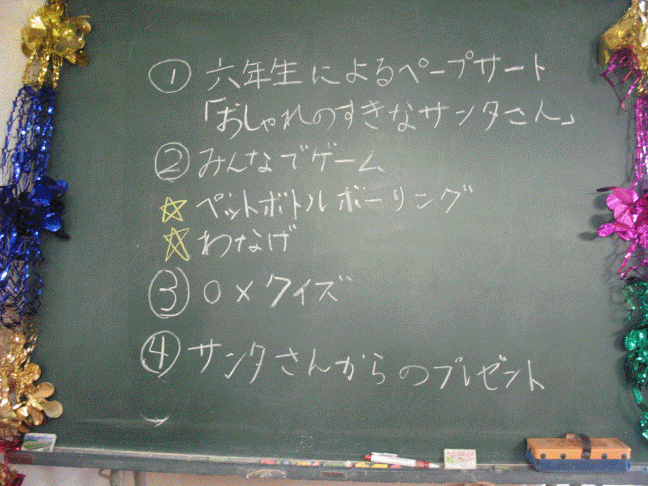 ① 六年生によるペープサート
「おしゃれのすきなサンタさん」
② みんなでゲーム
☆ ペットボトルボーリング
☆ わなげ
③ ○×クイズ
④ サンタさんからのプレゼント